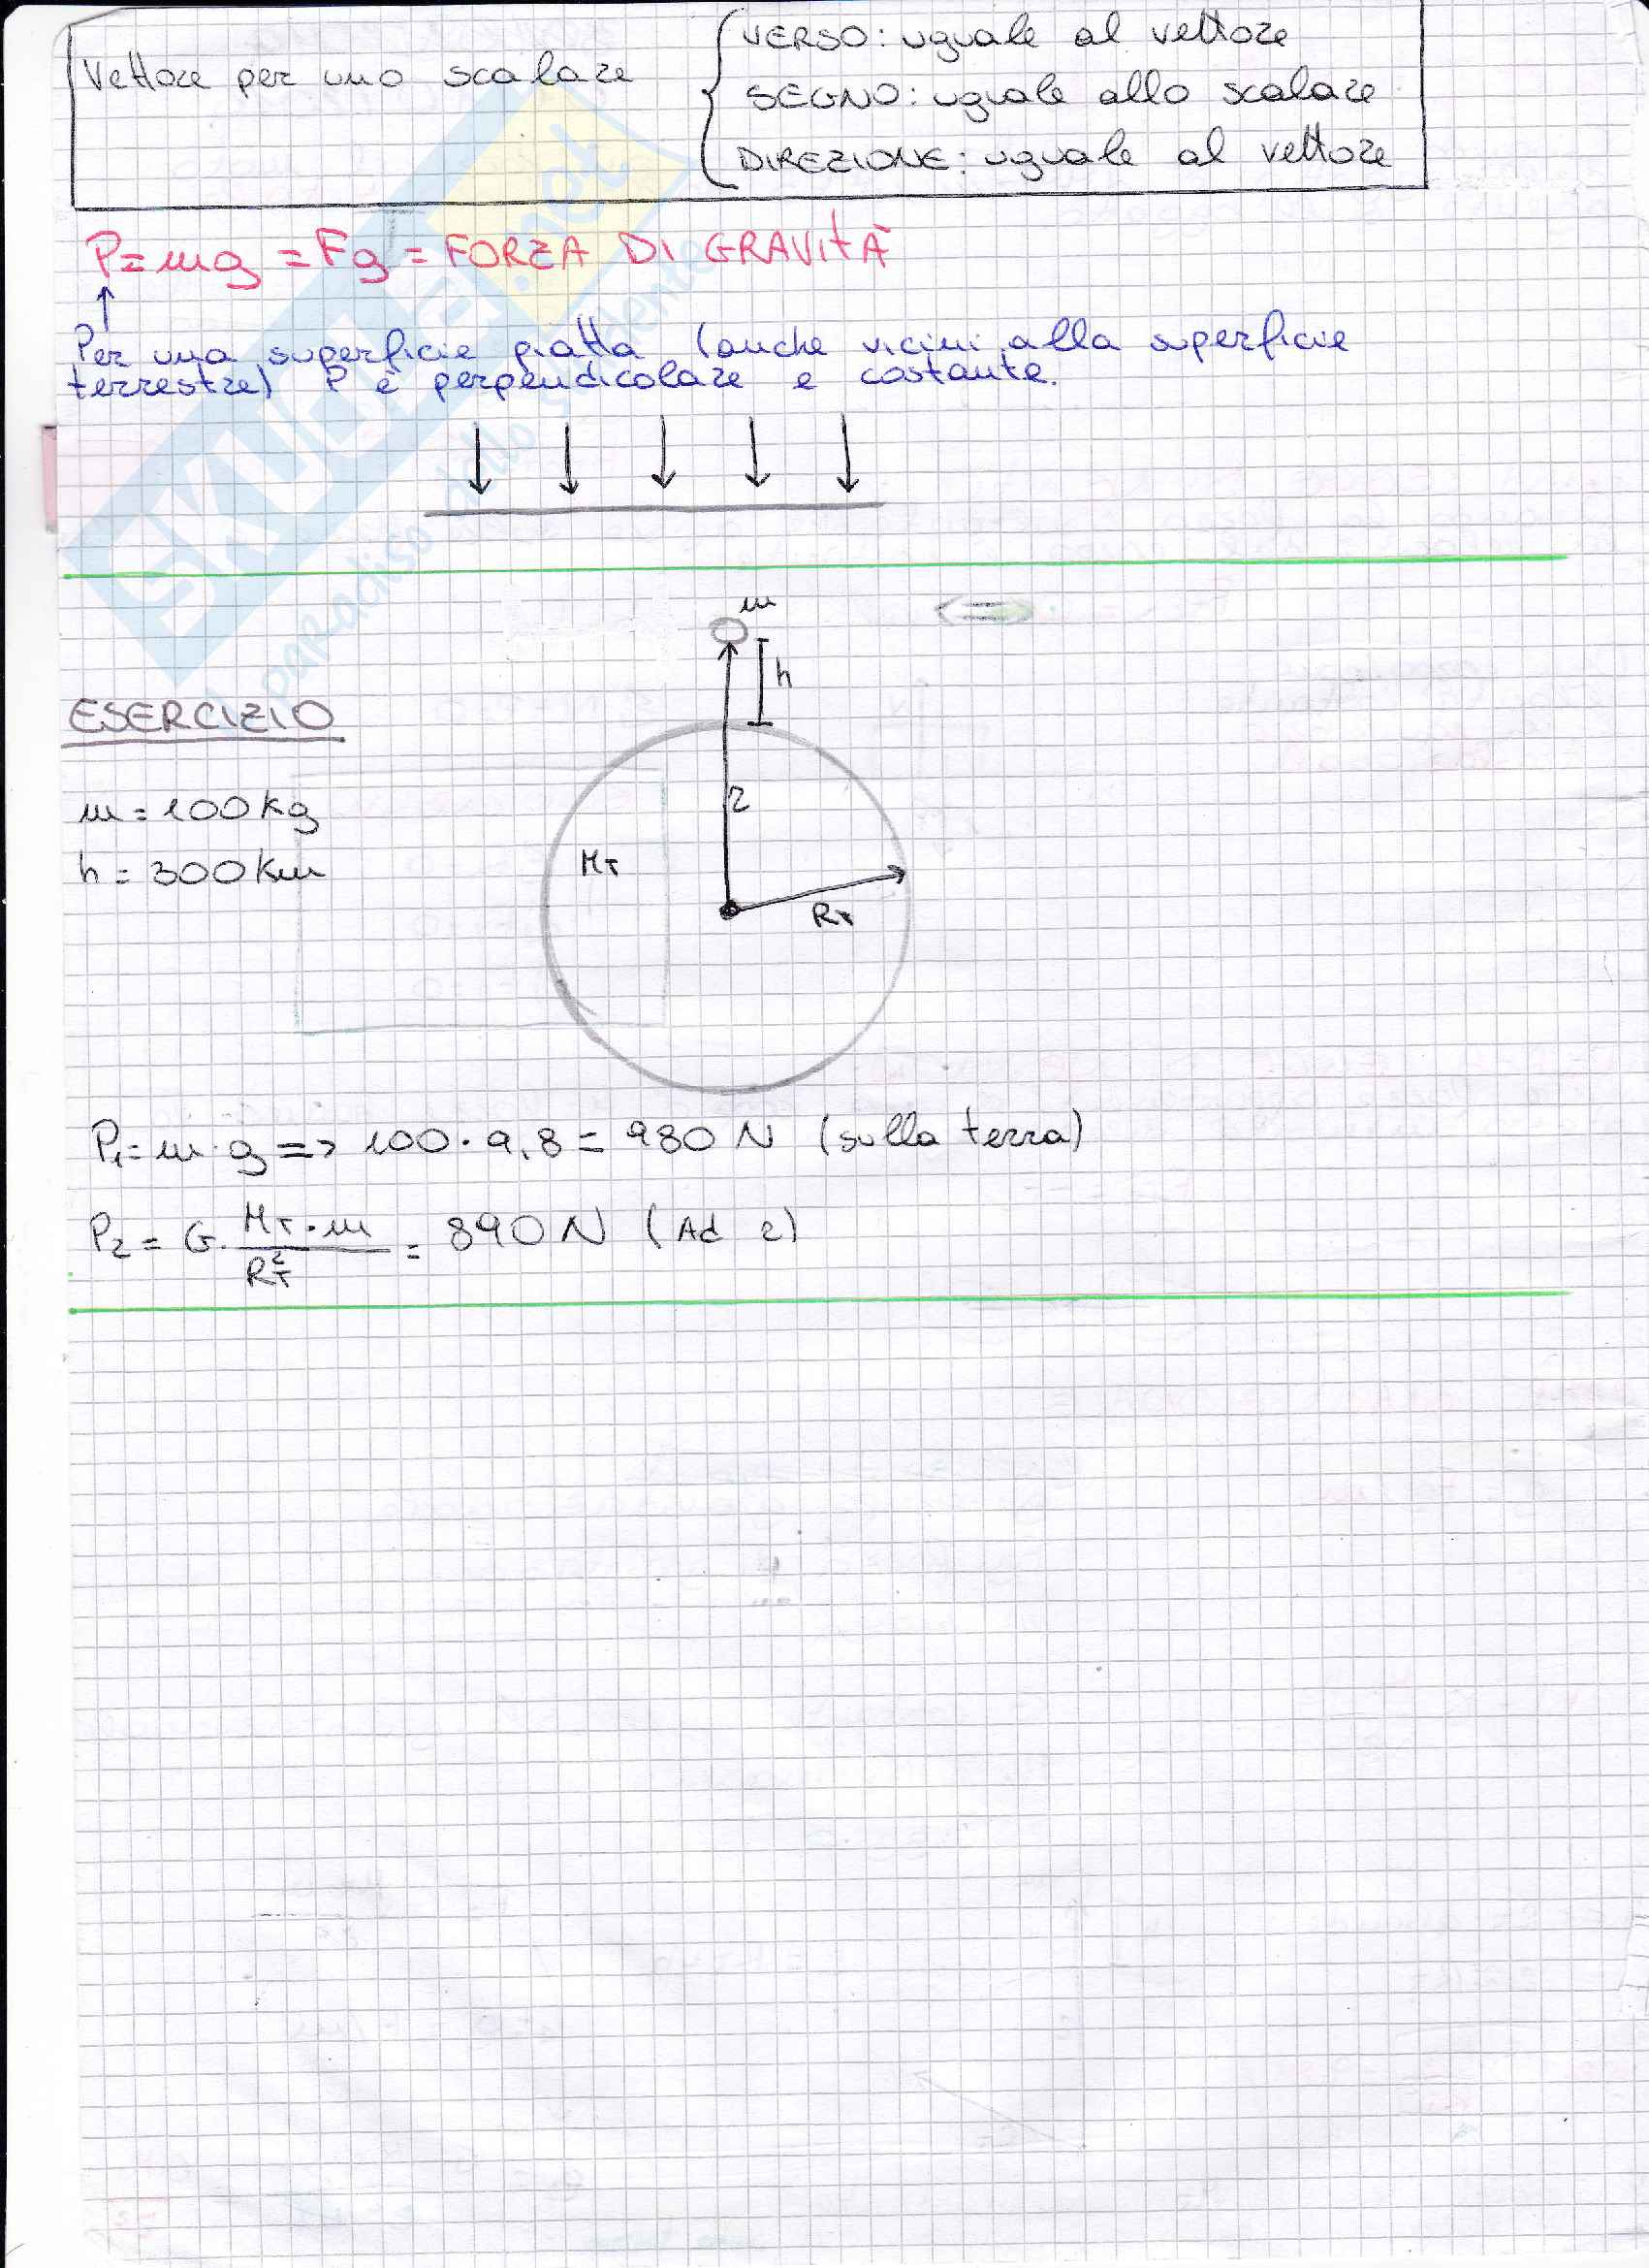 Vettore per uno scalare
VERSO: uguale al vettore
SEGNO: uguale allo scalare
DIREZIONE: uguale al vettore
P=mg = Fg = FORZA DI GRAVITÀ
Per una superficie piatta (anche vicini alla superficie
terrestre) P è perpendicolare e costante.
m
h
ESERCIZIO
r
m = 100 kg
h = 300 Km
MT
RT
P1 = m·g => 100·9,8 = 980 N (sulla terra)
P2 = G· MT·m / RT² = 890 N (Ad r)
SKUOLA.net
il paradiso dello studente